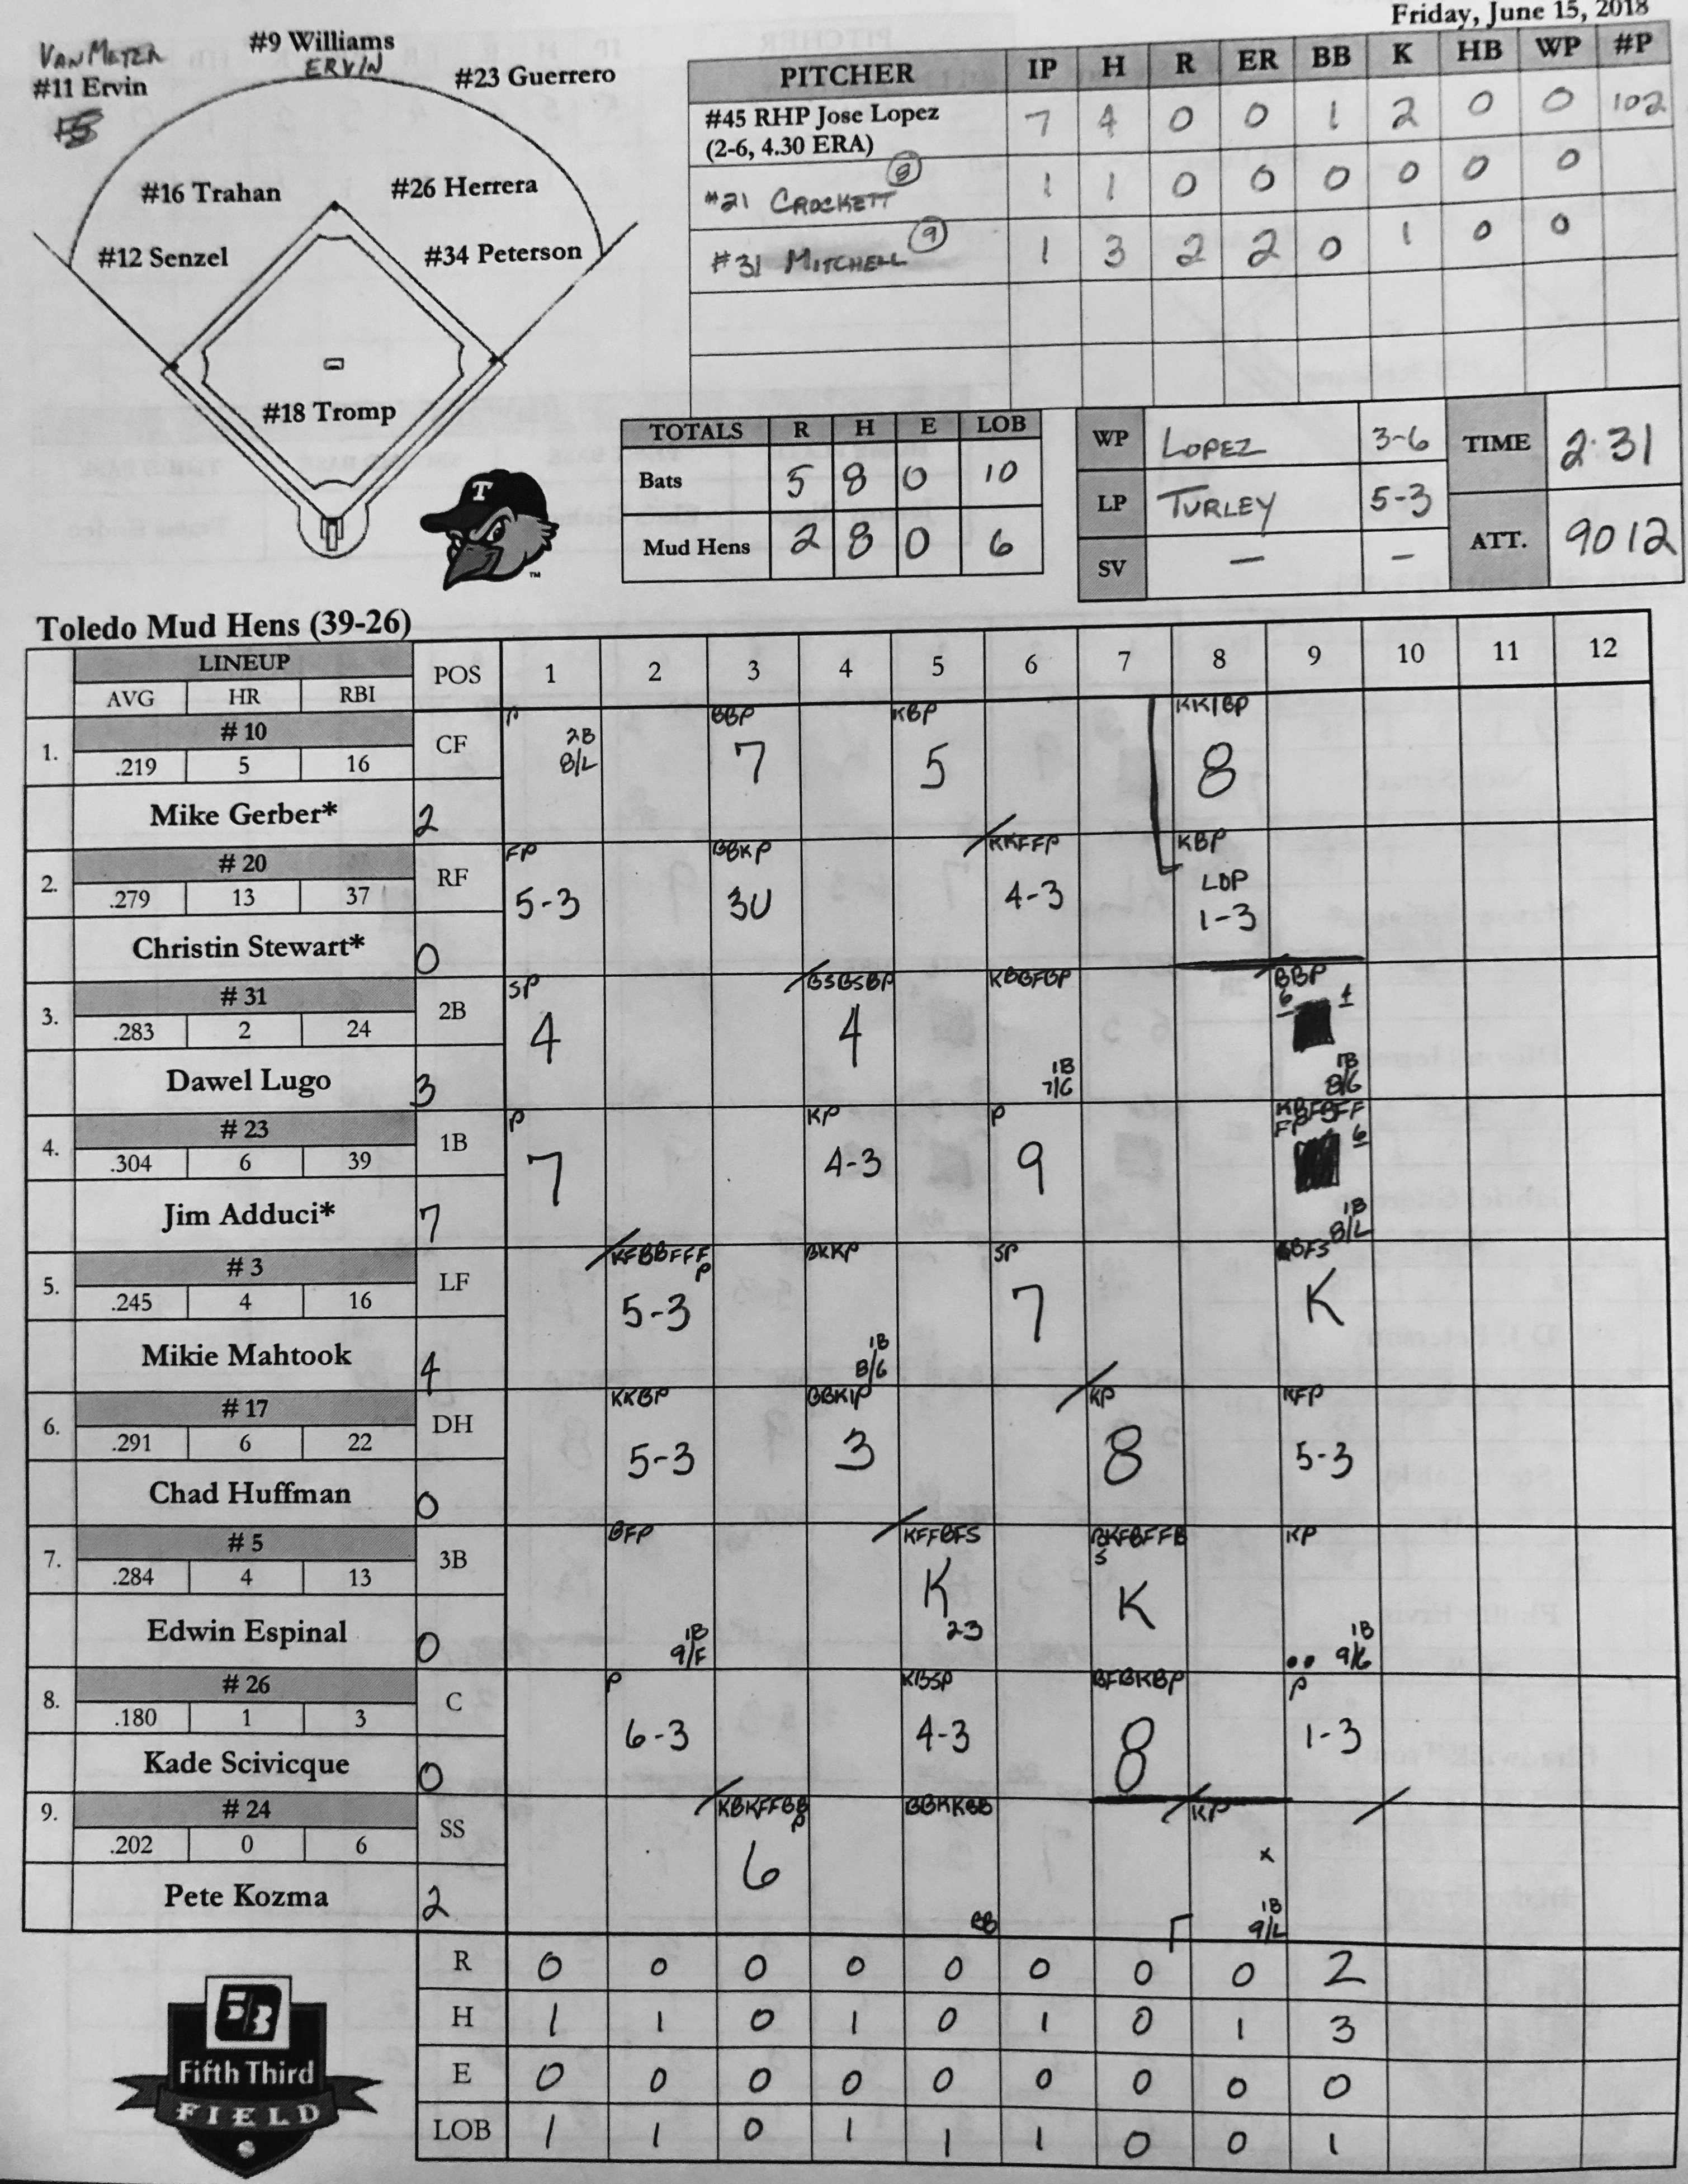 Friday, June 15, 2018
VANMETER
#11 Ervin
#9 Williams
ERVIN
#23 Guerrero
#16 Trahan
#26 Herrera
#12 Senzel
#34 Peterson
#18 Tromp
PITCHER IP H R ER BB K HB WP #P
#45 RHP Jose Lopez 7 4 0 0 1 2 0 0 102
(2-6, 4.30 ERA)
#21 CROCKETT 8 1 1 0 0 0 0 0 0
#31 MITCHELL 9 1 3 2 2 0 1 0 0
TOTALS R H E LOB
Bats 5 8 0 10
Mud Hens 2 8 0 6
WP LOPEZ 3-6
LP TURLEY 5-3
SV — —
TIME 2:31
ATT. 9012
T
TM
Toledo Mud Hens (39-26)
LINEUP POS 1 2 3 4 5 6 7 8 9 10 11 12
AVG HR RBI
1. #10 CF P BBP KBP KK1BP
.219 5 16 2B 8/L 7 5 8
Mike Gerber* 2
2. #20 RF FP BBKP KKFFP KBP
.279 13 37 5-3 3U 4-3 LDP 1-3
Christin Stewart* 0
3. #31 2B SP BSBSBP KBBFBP BBP
.283 2 24 4 4 6 4
Dawel Lugo 3 1B 7/6 1B 8/6
4. #23 1B P KP P KBFBFF FP
.304 6 39 7 4-3 9 6
Jim Adduci* 7 1B 8/L
5. #3 LF KFBBFFF P BKKP SP BFS
.245 4 16 5-3 7 K
Mikie Mahtook 4 1B 8/6
6. #17 DH KKBP BBK1P KP KFP
.291 6 22 5-3 3 8 5-3
Chad Huffman 0
7. #5 3B BFP KFFBFS BKFBFFB S KP
.284 4 13 K K
Edwin Espinal 0 1B 9/F 23 1B 9/6
8. #26 C P KBSP BFBKBP P
.180 1 3 6-3 4-3 8 1-3
Kade Scivicque 0
9. #24 SS KBKFFBB P BBKKBB KP
.202 0 6 6 x
Pete Kozma 2 BB 1B 9/L
R 0 0 0 0 0 0 0 0 2
H 1 1 0 1 0 1 0 1 3
E 0 0 0 0 0 0 0 0 0
LOB 1 1 0 1 1 1 0 0 1
5/3
Fifth Third
FIELD